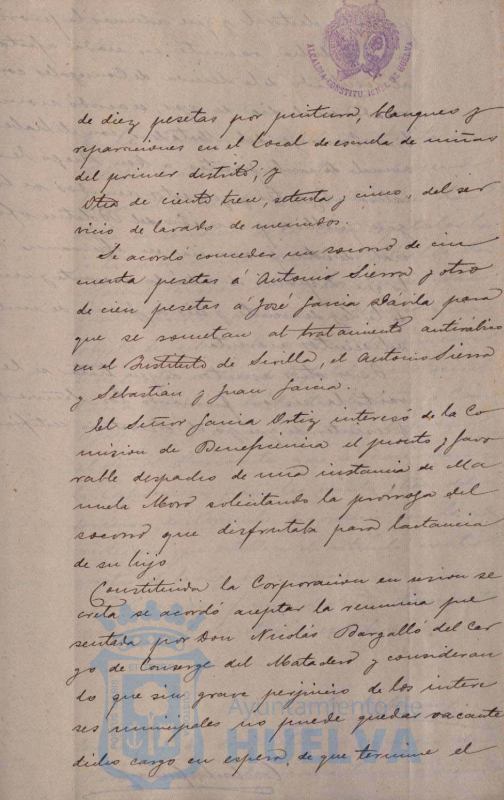 ALCALDIA CONSTITUCIONAL DE HUELVA
de diez pesetas por pintura, blanqueo y
reparaciones en el local de escuela de niñas
del primer distrito; y
Otra de ciento trece, setenta y cinco, del ser
vicio de lavado de menudos.
Se acordó conceder un socorro de cin
cuenta pesetas á Antonio Sierra y otro
de cien pesetas á José Garcia Dávila para
que se sometan al tratamiento antirábico
en el Instituto de Sevilla, el Antonio Sierra
y Sebastian y Juan Garcia.
El Señor Garcia Ortiz interesó de la Co
mision de Beneficencia el pronto y favo
rable despacho de una instancia de Ma
nuela Moro solicitando la prórroga del
socorro que disfrutaba para lactancia
de su hijo
Constituida la Corporacion en sesion se
creta se acordó aceptar la renuncia pre
sentada por Don Nicolás Bargalló del car
go de Conserge del Matadero y consideran
do que sin grave perjuicio de los intere
ses municipales no puede quedar vacante
dicho cargo en espera de que termine el
Ayuntamiento de
HUELVA